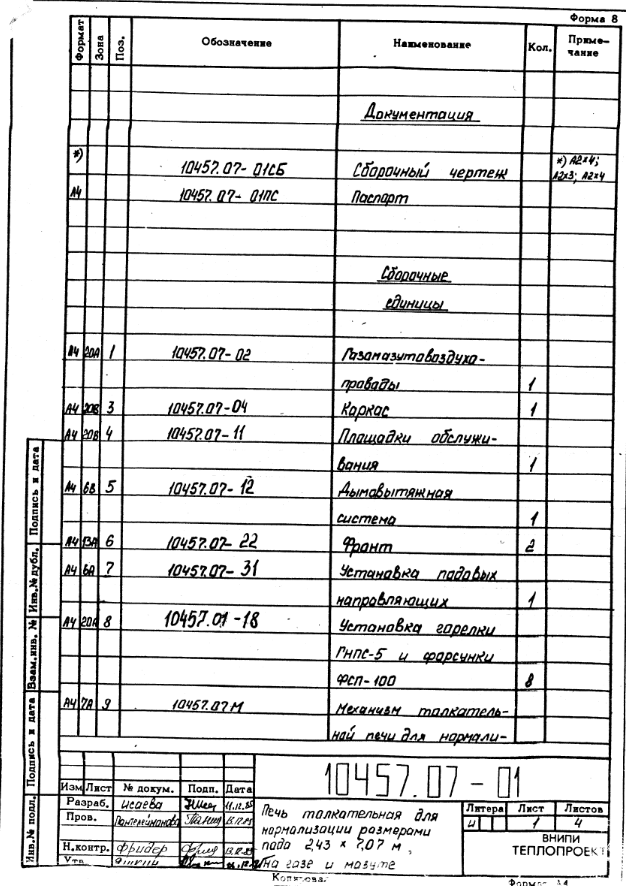 Форма 8
Формат Зона Поз. Обозначение Наименование Кол. Приме-
чание
Документация
*) 10457.07-01СБ Сборочный чертеж *) А2х4;
А2х3; А2х4
А4 10457.07-01ПС Паспорт
Сборочные
единицы
А4 20А 1 10457.07-02 Газомазутовоздухо-
проводы 1
А4 20В 3 10457.07-04 Каркас 1
А4 20В 4 10457.07-11 Площадки обслужи-
вания 1
А4 6В 5 10457.07-12 Дымовытяжная
система 1
А4 13А 6 10457.07-22 Фронт 2
А4 6А 7 10457.07-31 Установка подовых
направляющих 1
А4 20А 8 10457.01-18 Установка горелки
ГНПС-5 и форсунки
ФСП-100 8
А4 7А 9 10457.07М Механизм толкатель-
ной печи для нормали-
Инв.№ подл. Подпись и дата Взам.инв. № Инв.№ дубл. Подпись и дата
10457.07-01
Изм Лист № докум. Подп. Дата
Разраб. Исаева
Пров.
Н.контр. Фридер
Утв.
Печь толкательная для
нормализации размерами
пода 2,43 х 7,07 м,
на газе и мазуте
Литера Лист Листов
И 1 4
ВНИПИ
ТЕПЛОПРОЕКТ
Копировал
Формат А4